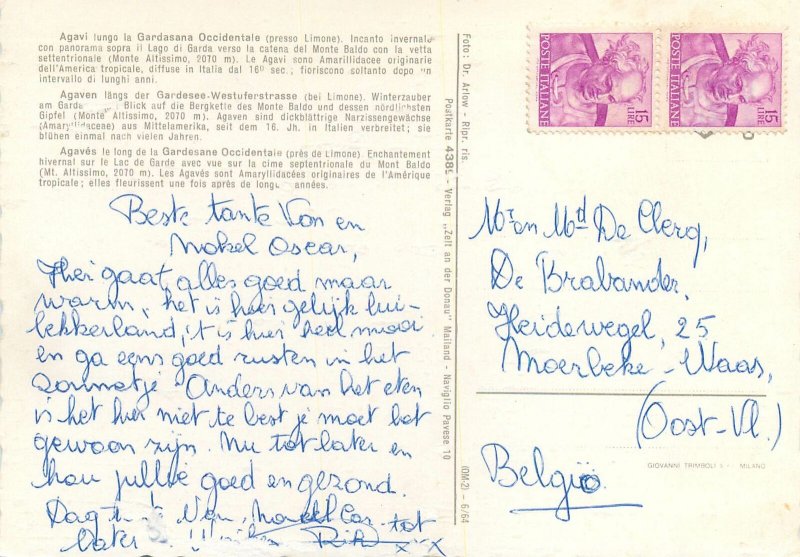 Agavi lungo la Gardasana Occidentale (presso Limone). Incanto invernale
con panorama sopra il Lago di Garda verso la catena del Monte Baldo con la vetta
settentrionale (Monte Altissimo, 2070 m). Le Agavi sono Amarillidacee originarie
dell'America tropicale, diffuse in Italia dal 16º sec.; fioriscono soltanto dopo un
intervallo di lunghi anni.
Agaven längs der Gardesee-Westuferstrasse (bei Limone). Winterzauber
am Gardasee. Blick auf die Bergkette des Monte Baldo und dessen nördlichsten
Gipfel (Monte Altissimo, 2070 m). Agaven sind dickblättrige Narzissengewächse
(Amaryllidaceae) aus Mittelamerika, seit dem 16. Jh. in Italien verbreitet; sie
blühen einmal nach vielen Jahren.
Agavés le long de la Gardesane Occidentale (près de Limone). Enchantement
hivernal sur le Lac de Garde avec vue sur la cime septentrionale du Mont Baldo
(Mt. Altissimo, 2070 m). Les Agavés sont Amaryllidacées originaires de l'Amérique
tropicale; elles fleurissent une fois après de longues années.
Beste tante Von en
nokel Oscar,
Hier gaat alles goed maar
warm, het is hier gelijk lui-
lekkerland, 't is hier heel mooi
en ga eens goed rusten in het
zonnetje Anders van het eten
is het hier niet te best je moet het
gewoon zijn. Nu tot later en
hou jullie goed en gezond.
Dag
tot
Later
x x
Foto: Dr. Arlow - Ripr. ris.
Postkarte 4385 - Verlag „Zelt an der Donau" Mailand - Naviglio Pavese 10
(OM-2) - 6/64
POSTE ITALIANE
15 LIRE
POSTE ITALIANE
15 LIRE
Mr en Md De Clerq,
De Brabander,
Heidewegel, 25
Moerbeke-Waas,
(Oost-Vl.)
België
GIOVANNI TRIMBOLI MILANO